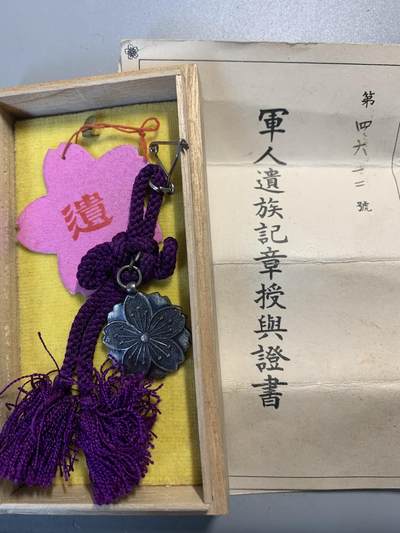 第四六號
軍人遺族記章授與證書
遺